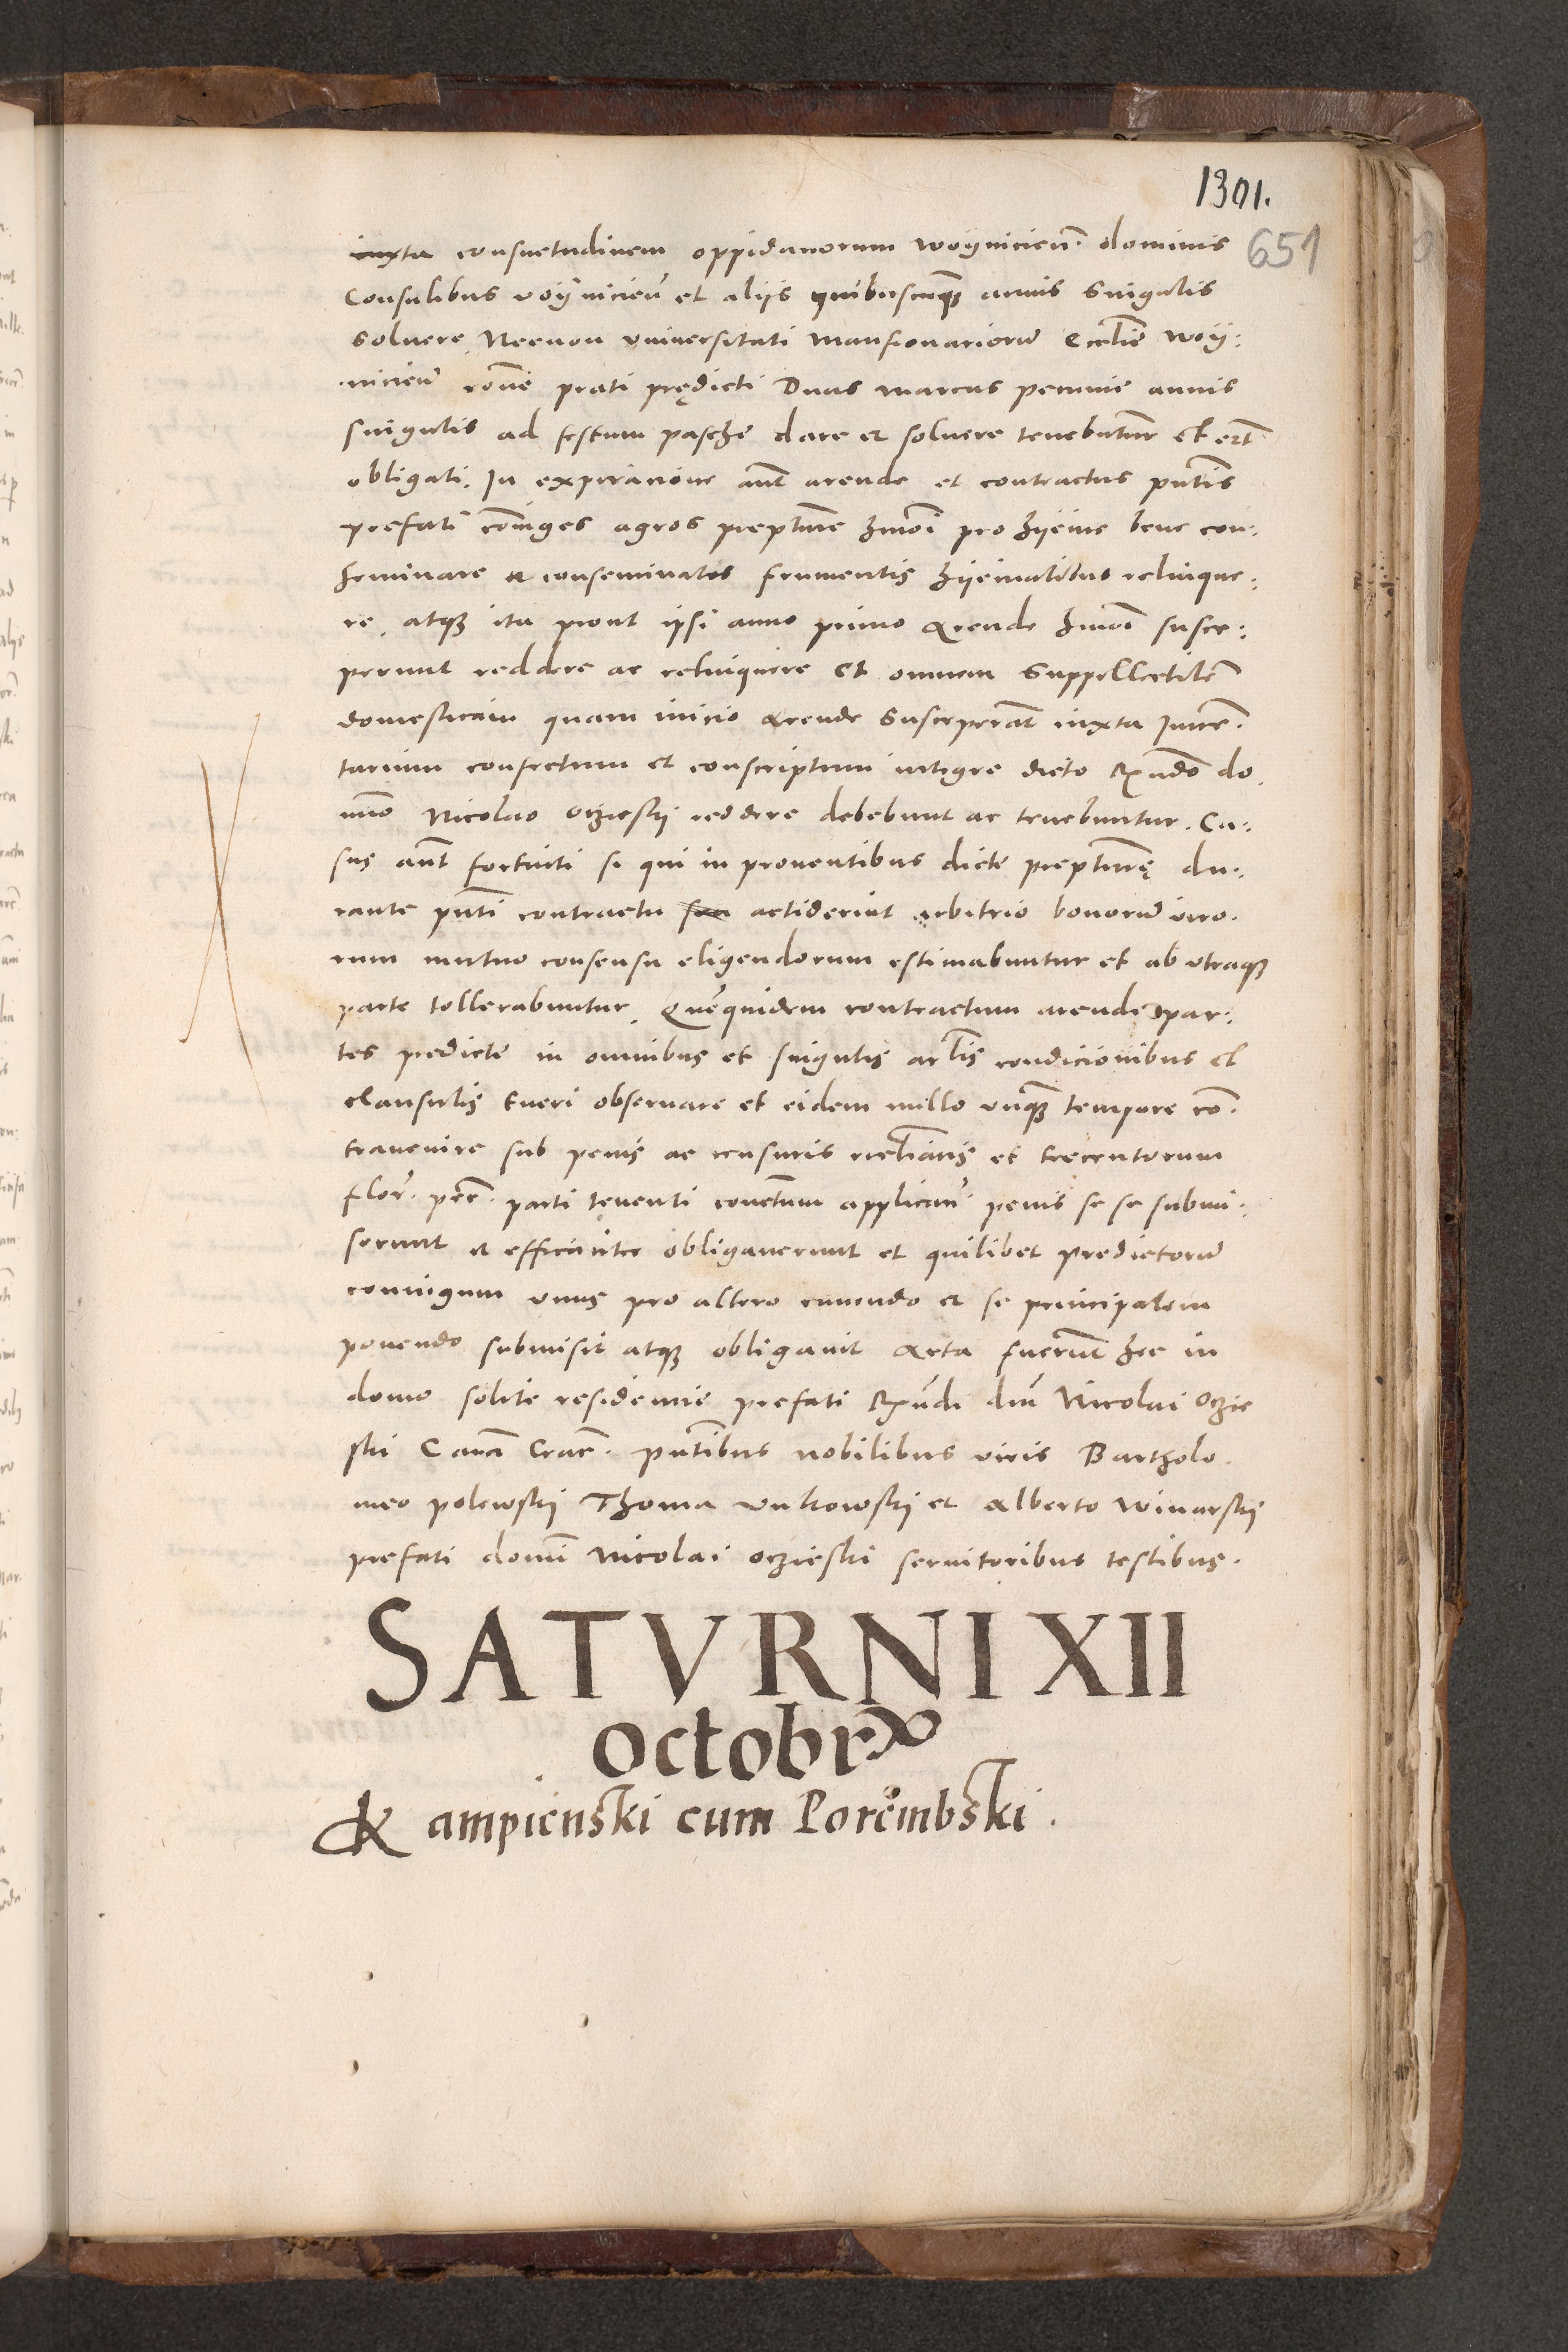 1301.
651
iuxta consuetudinem oppidanorum woyniciens. dominis
Consulibus voyniciens̄ et alijs quibuscunq̄ annis singulis
soluere Necnon vniuersitati mansionariorū Eccl̄ie woy:
niciens̄ rōne prati prędicti Duas marcas pecunie annis
singulis ad festum pasche dare et soluere tenebunt̄ur et er̄t
obligati. In expiracione aūt arende et contractus pn̄tis
prefati cōiuges agros prept̄ure hmōi pro hijeme bene con:
seminare et conseminatos frumentis hijemalibus relinque:
re, atq̄ ita prout ipsi anno primo arende hmōi susce:
perunt reddere ac relinquere Et omnem suppellectilē
domesticam quam inicio arende susceperāt iuxta Inuē:
tarium confectum et conscriptum integre dicto Rn̄do do
mīno Nicolao oczieskij reddere debebunt ac tenebuntur. Ca:
sus aūt fortuiti si qui in prouentibus dicte prept̄urę du:
rante pn̄ti contractu acciderint arbitrio bonorū viro.
rum mutuo consensu eligendorum estimabuntur et ab vtraq̄
parte tollerabuntur, Quēquidem contractum arende par:
tes predicte in omnibus et singulis art̄lis condicionibus et
clausulis tueri obseruare et eidem nullo vnq̄ tempore cō.
trauenire sub penis ac censuris eccl̄iasticis et trecentorum
flor̄. pec̄. parti tenenti cont̄ctum applicān. penis se se submi:
serunt et efficaciter obligauerunt et quilibet predictorū
coniugum vnus pro altero cauendo et se principalem
ponendo submisit atq̄ obligauit Acta fuerunt hec in
domo solite residencie prefati Rn̄di dn̄i Nicolai oczie
ski Can̄ci Crac̄. pn̄tibus nobilibus viris Bartholo.
meo polewskij Thoma vnkowskij et Alberto winarskij
prefati domī Nicolai oczieski seruitoribus testibus.
SATVRNI XII
octobrꝭ
Kampienski cum Porembski.